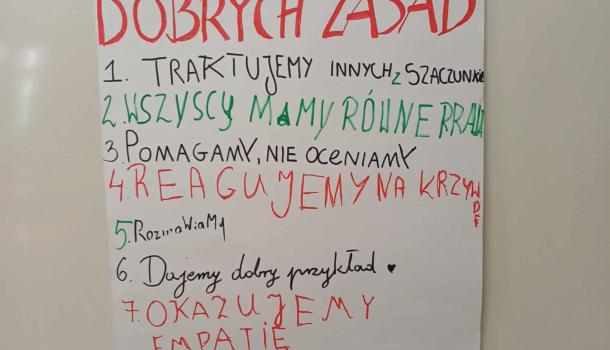 DOBRYCH ZASAD
1. TRAKTUJEMY INNYCH Z SZACUNKIEM
2. WSZYSCY MAMY RÓWNE PRAWA
3. POMAGAMY, NIE OCENIAMY
4. REAGUJEMY NA KRZYWDĘ
5. RozmaWiaMy
6. Dajemy dobry przykład ♥
7. OKAZUJEMY
EMPATIĘ